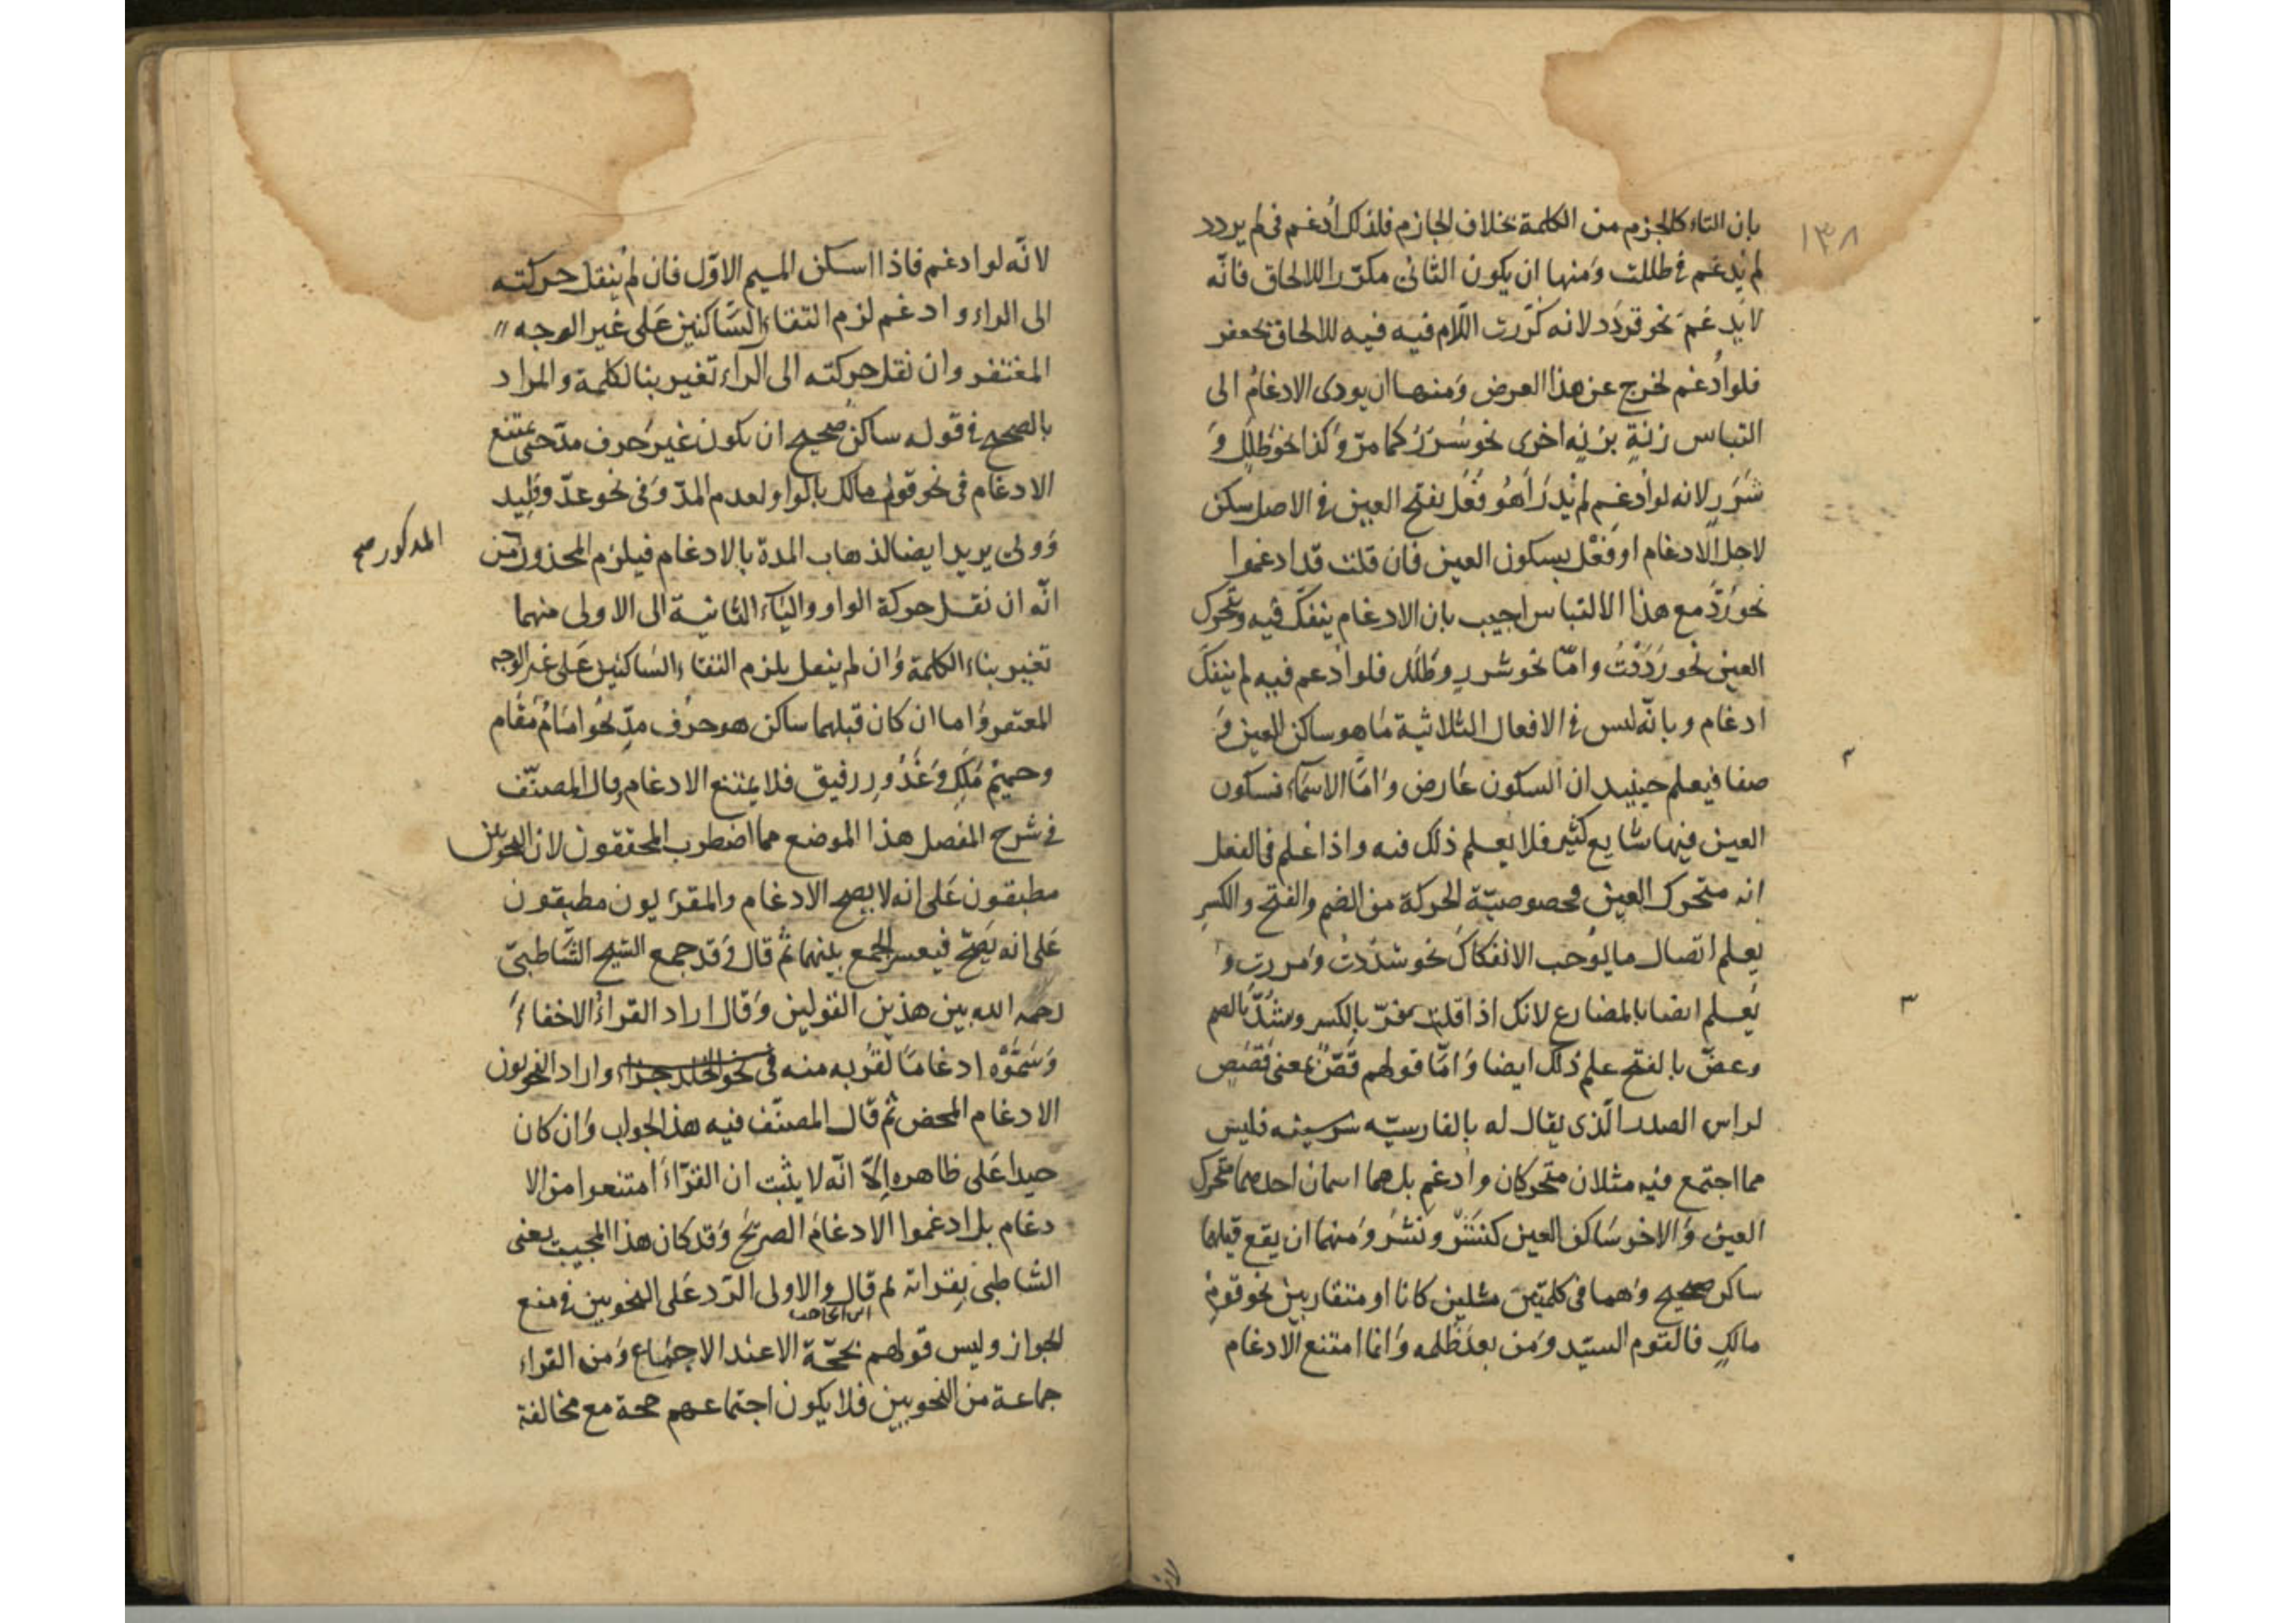 ١٣٨
بان التاء كالجزم من الكلمة بخلاف الجازم فلذلك أدغم فى لم يردد
لم يُدغم فى ظللت ومنها ان يكون الثانى مكرّرا للالحاق فانّه
لا يدغم نحو قردد لانه كُرّرت اللّام فيه فيه للالحاق بجعفر
فلو اُدغم لخرج عن هذا العرض ومنها ان يودى الادغام الى
التباس زنةٍ بزنةٍ اخرى نحو سُرُر كما مرّ وكذا نحو ظلل و
شَرَر لانه لو ادغم لم يُدرَ أهُو فَعَل بفتح العين فى الاصل سكن
لاجل الادغام او فَعْل بسكون العين فان قلت قد ادغموا
نحو رَدَّ مع هذا الالتباس اجيب بان الادغام ينفكّ فيه وتحرك
العين نحو رَدَدْتُ وامّا نحو شرر وظَلَل فلو اُدغم فيه لم ينفكَّ
ادغام وبانّه ليس فى الافعال الثلاثية ما هو ساكن العين و
صفا فيعلم حينئيد ان السكون عارض وامّا الاسماء فسكون
العين فيها شايع كثير فلا يعلم ذلك فيه واذا عُلم فى الفعل
انه متحرك العين فحصوصيّة الحركة من الضم والفتح والكسر
يعلم اتصال ما يُوجب الانفكاك نحو شدُدتُ ومررت و
يُعلم ايضا بالمضارع لانك اذا قلت يفرّ بالكسر ويشُدّ بالضم
وعضّ بالفتح علم ذلك ايضا وامّا قولهم قَصّ بمعنى قَصَص
لراس الصدر الّذى يقال له بالفارسيّه سرسينه فليس
مما اجتمع فيه مثلان متحركان وادغم بل هما اسمان احدهما متحرك
العين والاخر ساكن العين كنَشْز ونَشَز ومنها ان يقع قبلها
ساكن صحيح وهما فى كلمتين مثلين كانا او متقاربين نحو قوم
مالكٍ فالقوم السيّد ومن بعد ظلمه وانما امتنع الادغام
لانّه لو ادغم فاذا اسكن الميم الاوّل فان لم يُنقل حركته
الى الراء وادغم لزم التقاء السّاكنين على غير الوجه
المغتفر وان نقل حركته الى الراء تغير بنا الكلمة والمراد
بالصحيح فى قوله ساكن صحيح ان يكون غير حرف مدّ حتى يمتنع
الادغام فى نحو قوم مالك بالواو لعدم المدّ وفى نحو عدوّ وليد
وولى يزيد ايضا لذهاب المدة بالادغام فيلزم المحذور من
المذكور صح
انّه ان نقل حركة الواو والياء الثانية الى الاولى منهما
تغير بناء الكلمة وان لم ينقل يلزم التقاء السّاكنين على غير الوجه
المغتفر واما ان كان قبلهما ساكن هو حرف مدّ نحو امَامُ مَقام
وحميمُ مَلِك وغَدُور رفيق فلا يمتنع الادغام وقال المصنّف
فى شرح المفصل هذا الموضع مما اضطرب المحققون لان النحويين
مطبقون على انه لا يصح الادغام والمقرئون مطبقون
على انه يَصحّ فيعسر الجمع بينهما ثم قال وقد جمع الشيخ الشّاطبىّ
رحمه الله بين هذين القولين وقال اراد القراء الاخفاء
وسَمّوْه ادغاما لقُربه منه فى نحو الخلد جزاء واراد النحويون
الادغام المحض ثم قال المصنّف فيه هذا الجواب وان كان
جيدا على ظاهره الّا انّه لا يثبت ان القرّاء امتنعوا من الا
دغام بل ادغموا الادغام الصريح وقد كان هذا المجيب يعنى
الشاطبى يقراته ثم قال والاولى الرّد على النحويين فى منع
ابن الحاجب
الجواز وليس قولهم بحجّة الا عند الاجماع ومن القراء
جماعة من النحويين فلا يكون اجتماعهم حجة مع مخالفة